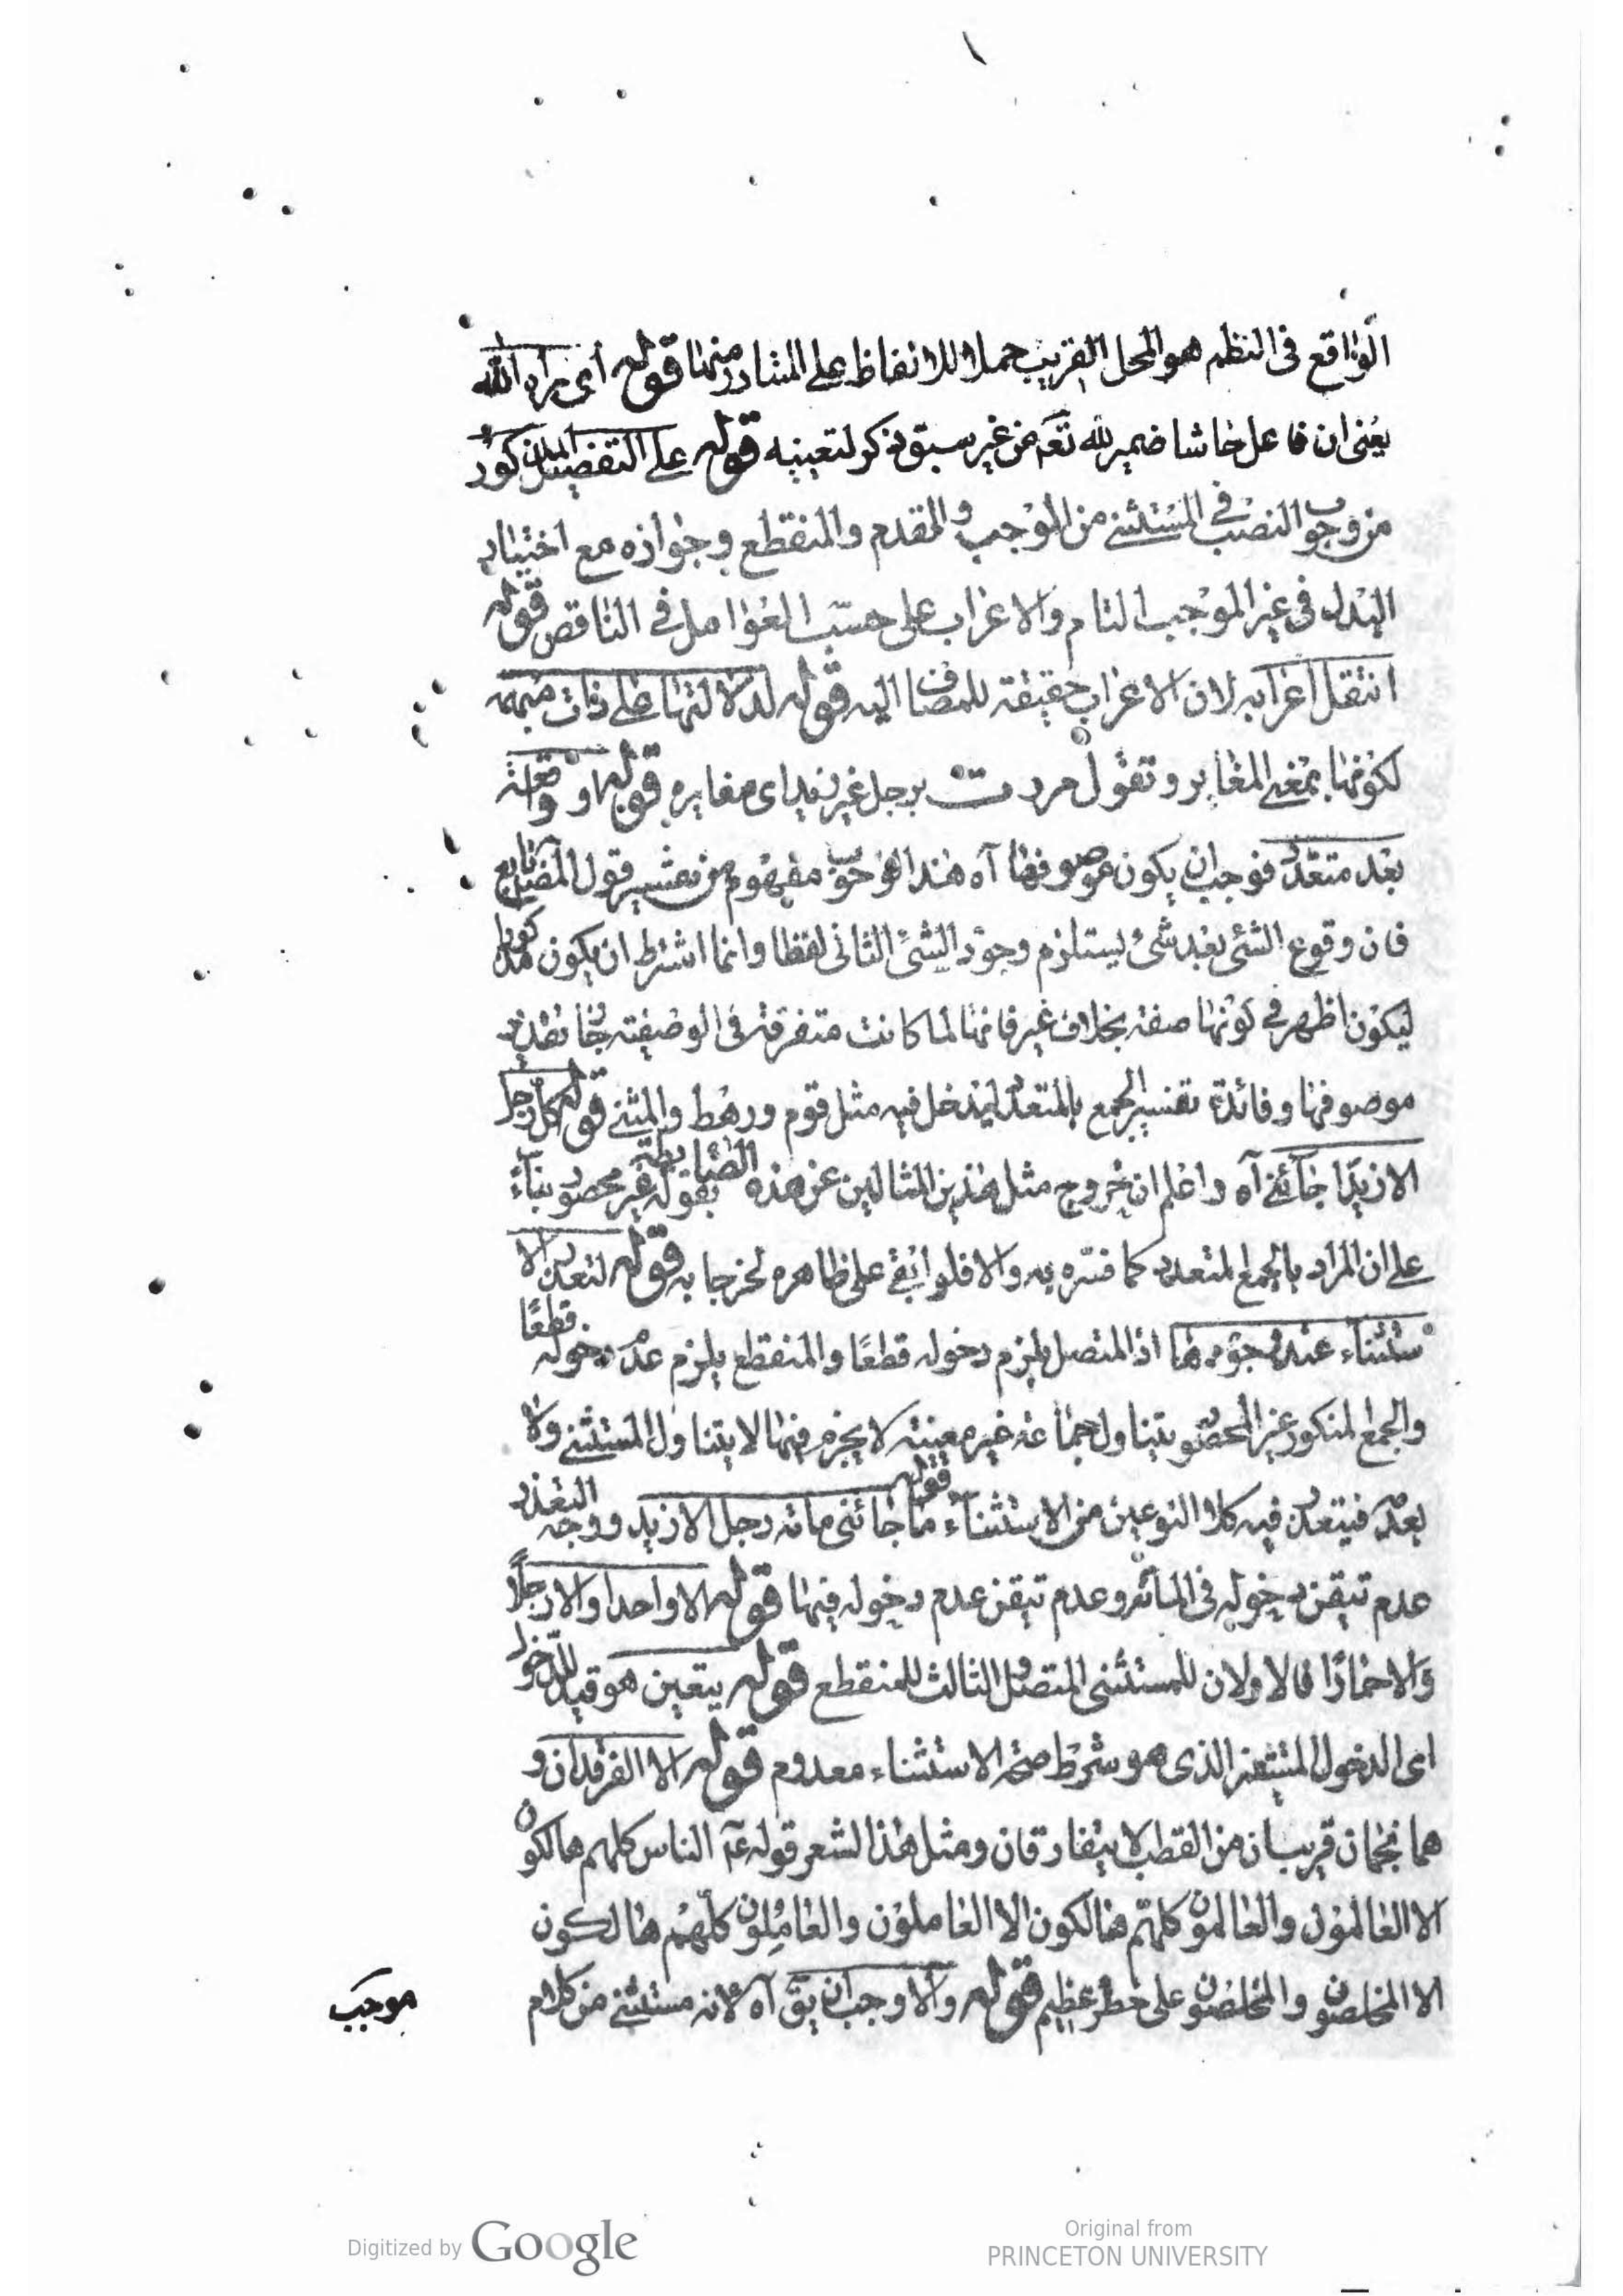 الواقع في النظم هو المحل القريب حملا للالفاظ على المتبادر منها قوله أي براه الله
يعني ان فاعل حاشا ضمير لله تعم من غير سبق ذكر لتعينه قوله على التفضيل المذكور
من وجوب النصب في المستثنى من الموجب والمقدم والمنقطع وجوازه مع اختيار
البدل في غير الموجب التام والاعراب على حسب العوامل في الناقص قوله
انتقل اعرابه لان الاعراب حقيقة للمضاف اليه قوله لدلالتها على ذات مبهمة
لكونها بمعنى المغاير وتقول مررت برجل غير زيد اى مغايره قوله او واقعة
بعد متعدد فوجب ان يكون موصوفها آه هذا الوجوب مفهوم من تفسير قول المص تابع
فان وقوع الشئ بعد شئ يستلزم وجود الشئ الثانى لفظا وانما اشترط ان يكون مذكورا
ليكون اظهر في كونها صفة بخلاف غير فانها لما كانت متفرقة في الوصفية جاز تقدير
موصوفها وفائدة تفسير الجمع بالمتعدد ليدخل فيه مثل قوم ورهط والمثنى قوله كل رجل
الا زيدا جائنى آه واعلم ان خروج مثل هذين المثالين عن هذه الضابطة بقوله غير محصور بناء
على ان المراد بالجمع المتعدد كما فسره به والا فلو ابقى على ظاهره لخرجا به قوله لتعذر الا
ستثناء عند وجودها اذ المتصل يلزم دخوله قطعًا والمنقطع يلزم عدم دخوله قطعًا
والجمع المنكور غير المحصور يتناول جماعة غير معينة لا يجزم فيها لا يتناول المستثنى ولا
بعدمه فيتعذر فيه كلا النوعين من الاستثناء قوله ما جائنى مائة رجل الا زيد ووجه التعذر
عدم تيقن دخوله فى المائة وعدم تيقن عدم دخوله فيها قوله الا واحدا والا رجلاً
والا حمارًا فالاولان للمستثنى المتصل والثالث للمنقطع قوله يتعين هو قيد للدخول
اى الدخول المتيقن الذى هو شرط صحة الاستثناء معدوم قوله الا الفرقدان و
هما نجمان قريبان من القطب لا يتفارقان ومثل هذا الشعر قوله عم الناس كلهم هالكون
الا العالمون والعالمون كلهم هالكون الا العاملون والعاملون كلهم هالكون
الا المخلصون والمخلصون على خطر عظيم قوله والا وجب ان يق آه لانه مستثنى من كلام
موجب
Digitized by Google
Original from
PRINCETON UNIVERSITY